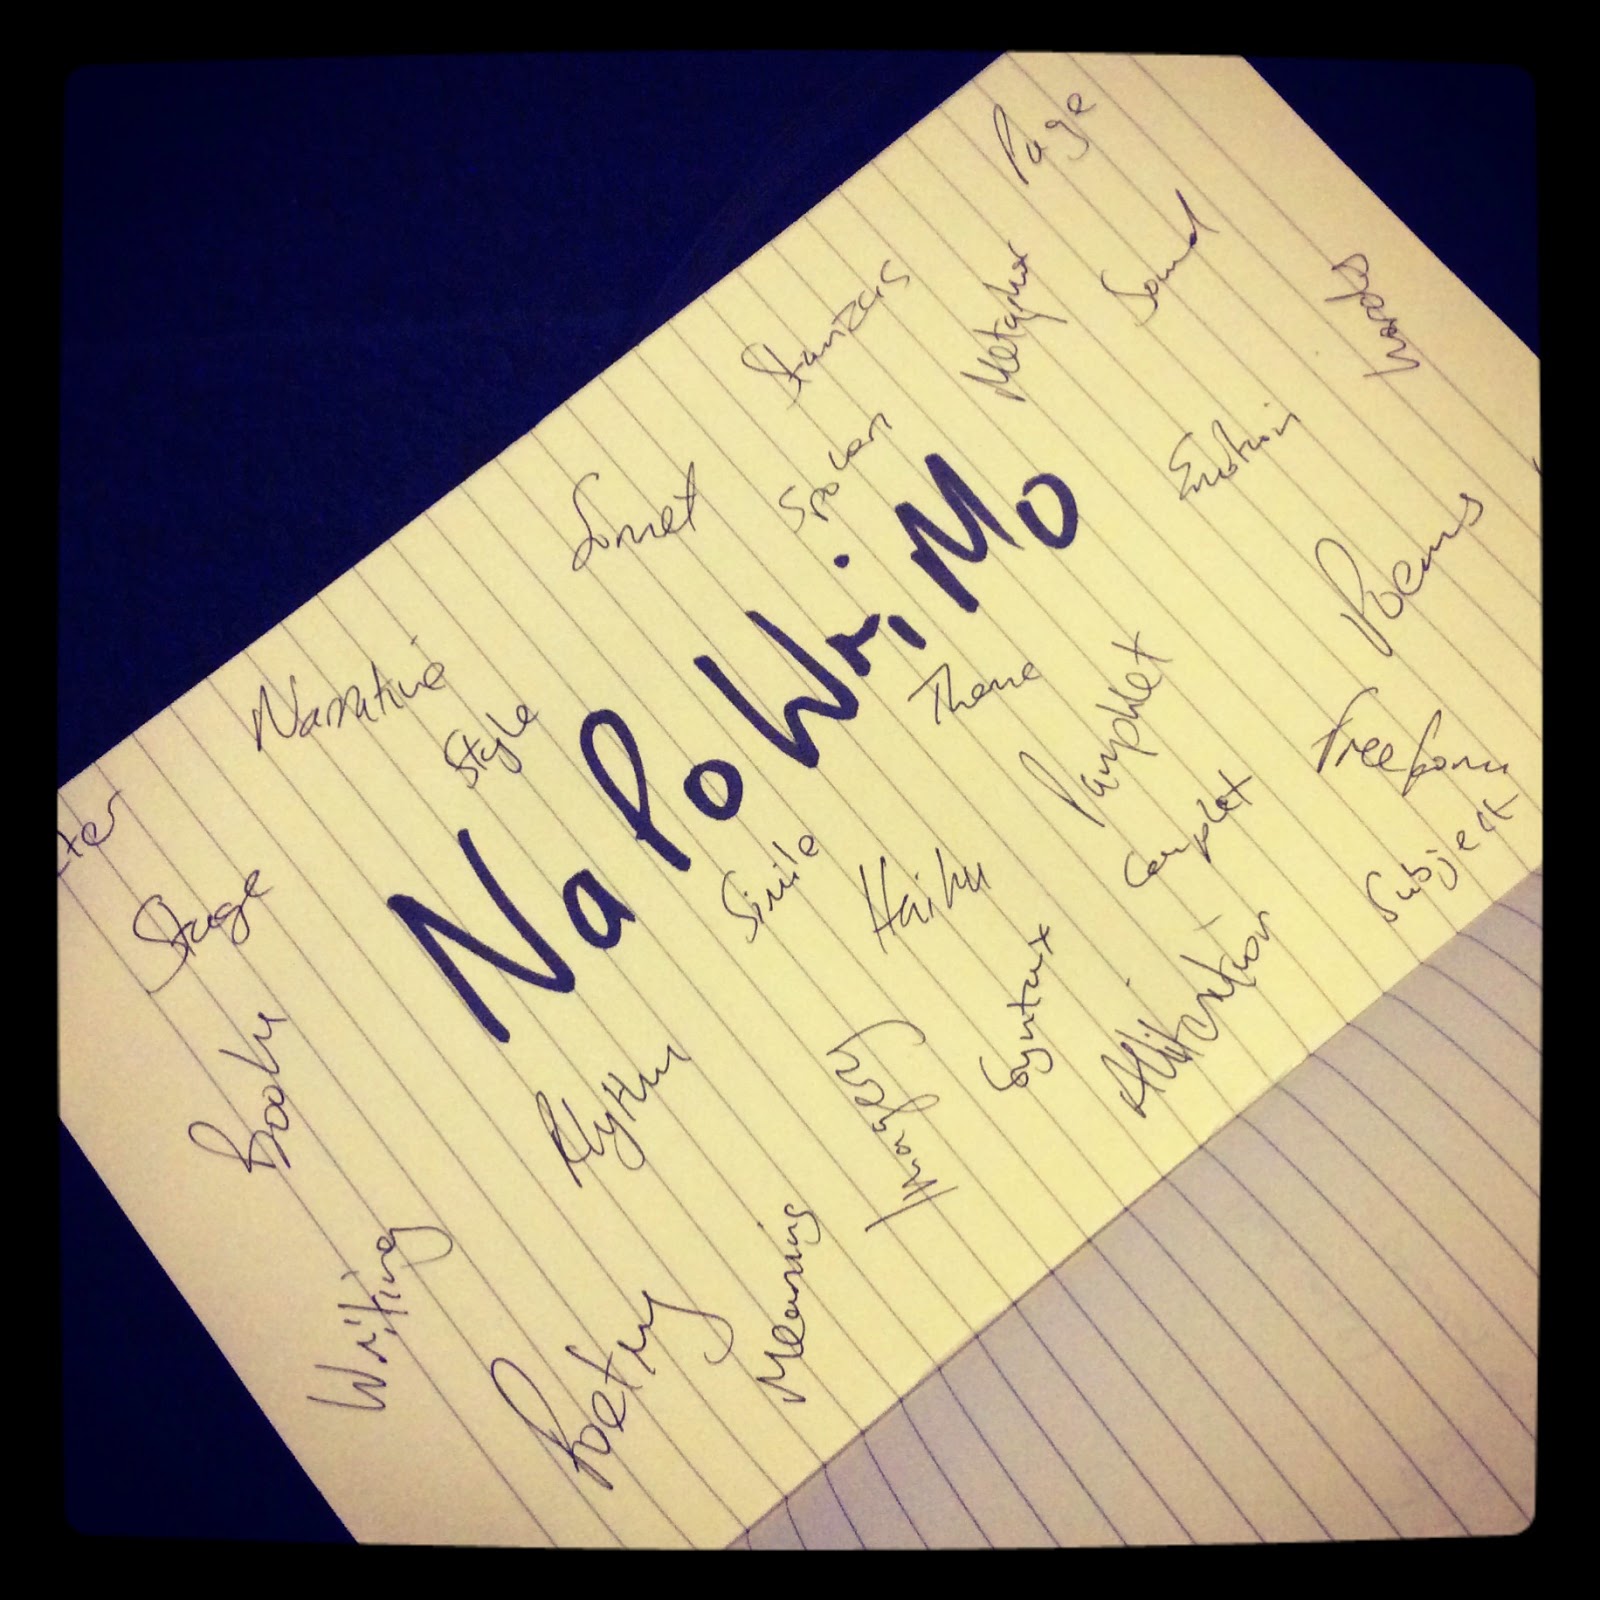 Page
Stanzas
Metaphor
Sound
Words
Sonnet
Spoken
Emotion
NaPoWriMo
Poems
Narrative
Style
Theme
Pamphlet
Freeform
Stage
Simile
Haiku
Couplet
Subject
Book
Rhythm
Imagery
Syntax
Alliteration
Writing
Poetry
Meaning